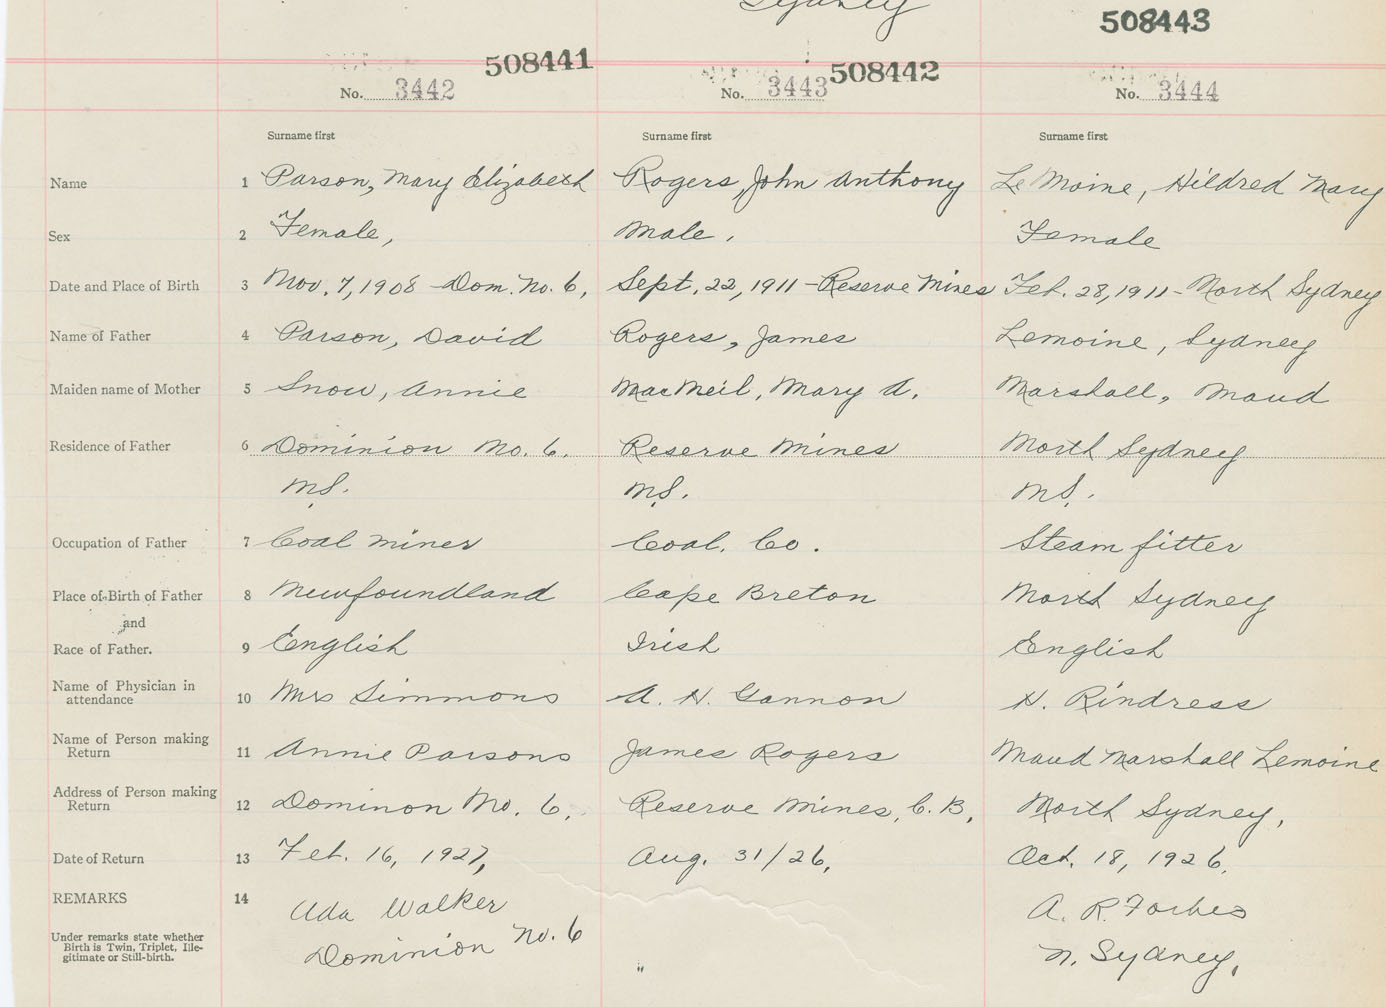 Sydney
508443
508441
508442
No. 3442
No. 3443
No. 3444
Surname first
Surname first
Surname first
Name 1 Parson, Mary Elizabeth Rogers, John Anthony Le Moine, Hildred Mary
Sex 2 Female, Male. Female
Date and Place of Birth 3 Nov. 7, 1908 - Dom. No. 6, Sept. 22, 1911 - Reserve Mines Feb. 28, 1911 - North Sydney
Name of Father 4 Parson, David Rogers, James Lemoine, Sydney
Maiden name of Mother 5 Snow, Annie MacNeil, Mary A. Marshall, Maud
Residence of Father 6 Dominion No. 6. Reserve Mines North Sydney
N.S. N.S. N.S.
Occupation of Father 7 Coal miner Coal. Co. Steam fitter
Place of Birth of Father 8 Newfoundland Cape Breton North Sydney
and
Race of Father. 9 English Irish English
Name of Physician in
attendance 10 Mrs Simmons A. H. Gannon H. Rindress
Name of Person making
Return 11 Annie Parsons James Rogers Maud Marshall Lemoine
Address of Person making
Return 12 Dominon No. 6, Reserve Mines, C. B, North Sydney,
Date of Return 13 Feb. 16, 1927, Aug. 31/26, Oct. 18, 1926.
REMARKS 14 Ada Walker A. R. Forbes
Dominion No. 6 N. Sydney,
Under remarks state whether
Birth is Twin, Triplet, Ille-
gitimate or Still-birth.